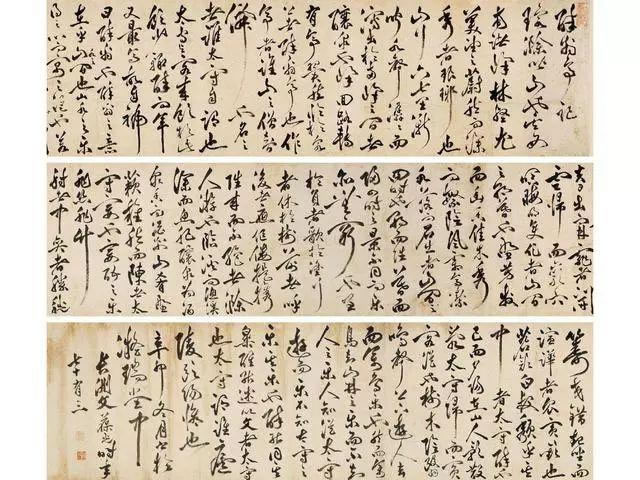 醉翁亭記
環滁皆山也其西
南諸峰林壑尤
美望之蔚然而深
秀者瑯琊也
山行六七里漸
聞水聲潺潺而
瀉出於兩峰之間者
釀泉也峰回路轉
有亭翼然臨於泉
上者醉翁亭也作
亭者誰山之僧智
僊
也名之
者誰太守自謂也
太守與客來飲於此
飲少輒醉而年
又最高故自號
曰醉翁也醉翁之意
在乎山水之間也山水之樂
得之心而寓之酒也若
夫日出而林霏開
雲歸而巖穴
暝晦明變化者山間
之朝暮也野芳發
而幽香佳木秀
而繁陰風霜高潔
水落而石出者山間之
四時也朝而往暮而
歸四時之景不同而樂
亦無窮也至
於負者歌於塗行
者休於樹前者呼
後者應傴僂提攜
往來而不絕者滁
人遊也臨溪而漁溪
深而魚肥釀泉為酒
泉香而酒洌山肴野
蔌雜然而前陳者太
守宴也宴酣之樂
非絲非竹
射者中弈者勝觥
籌交錯起坐而
諠譁者眾賓歡也
蒼顏白髮頹然乎其
中者太守醉也
已而夕陽在山人影散
亂太守歸而賓
客從也樹林陰翳
鳴聲上下遊人去
而禽鳥樂也然而禽
鳥知山林之樂而不知
人之樂人知從太守
遊而樂不知太守之
樂其樂也醉能同其
樂醒能述以文者太守
也太守謂誰廬
陵歐陽修也
辛卯冬月書於
凝瑞堂中
長洲文葆光時年
七十有二